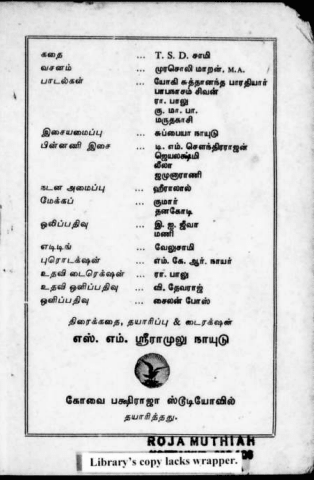 கதை ... T. S. D. சாமி
வசனம் ... முரசொலி மாறன், M.A.
பாடல்கள் ... யோகி சுத்தானந்த பாரதியார்
பாபநாசம் சிவன்
ரா. பாலு
கு. மா. பா.
மருதகாசி
இசையமைப்பு ... சுப்பையா நாயுடு
பின்னணி இசை ... டி. எம். சௌந்திரராஜன்
ஜெயலக்ஷ்மி
லீலா
ஜமுனாராணி
நடன அமைப்பு ... ஹீராலால்
மேக்கப் ... குமார்
தனகோடி
ஒலிப்பதிவு ... இ. ஐ. ஜீவா
மணி
எடிடிங் ... வேலுசாமி
புரொடக்ஷன் ... எம். கே. ஆர். நாயர்
உதவி டைரெக்ஷன் ... ரா. பாலு
உதவி ஒளிப்பதிவு ... வி. தேவராஜ்
ஒளிப்பதிவு ... சைலன் போஸ்
திரைக்கதை, தயாரிப்பு & டைரக்ஷன்
எஸ். எம். ஸ்ரீராமுலு நாயுடு
கோவை பக்ஷிராஜா ஸ்டூடியோவில்
தயாரித்தது.
ROJA MUTHIAH
Library's copy lacks wrapper.